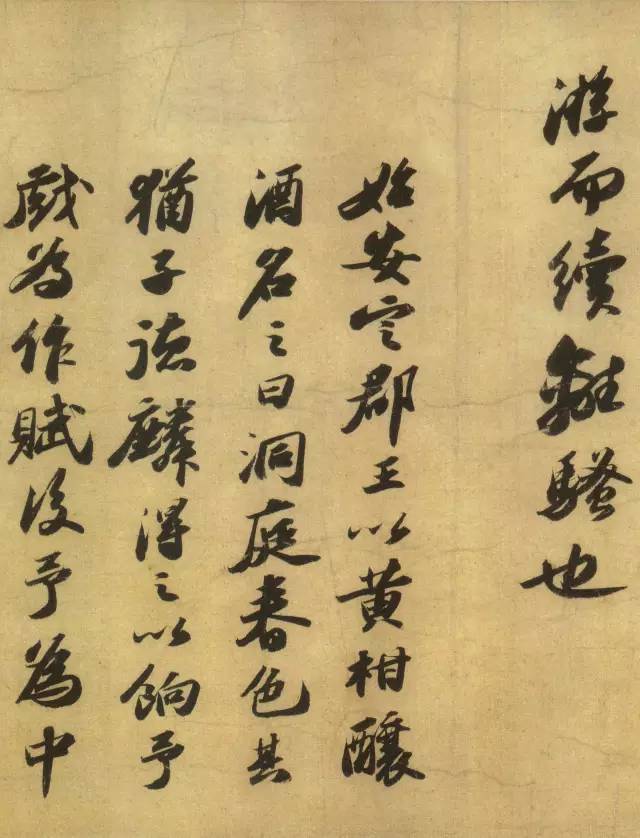 游而續離騷也
始安定郡王以黄柑釀
酒名之曰洞庭春色其
猶子德麟得之以餉予
戲為作賦後予為中